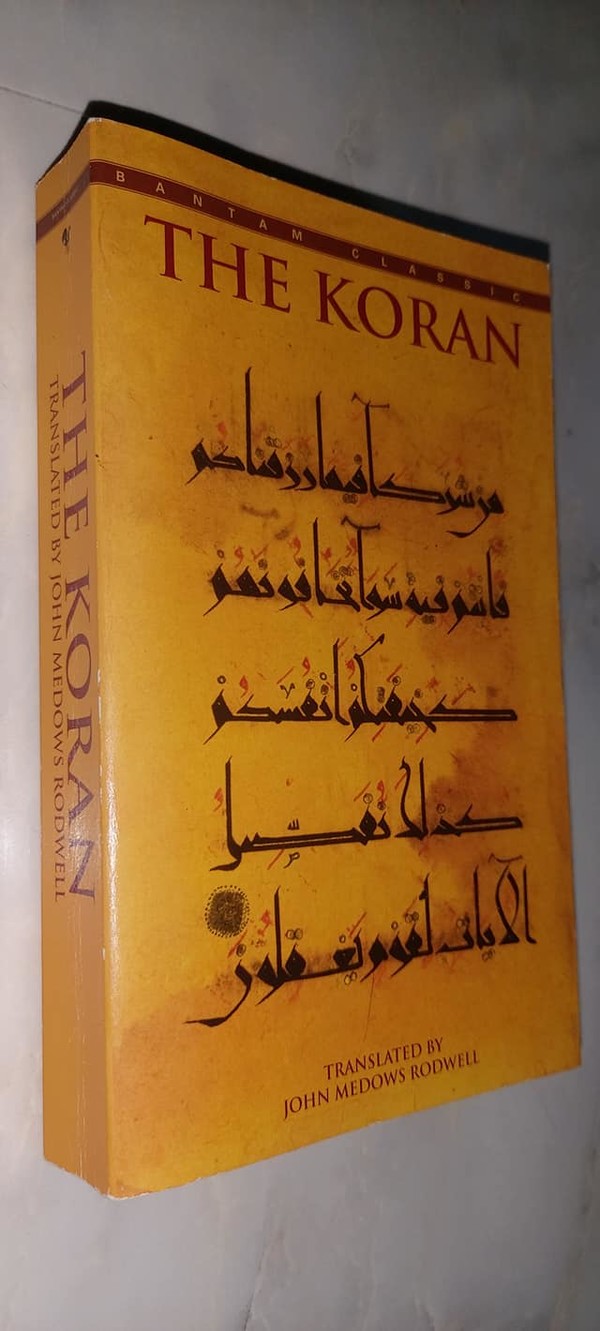 BANTAM CLASSIC
THE KORAN
من شركآ فيما رزقناكم
فانتم فيه سوآ تخافونهم
كخيفتكم انفسكم
كذلك نفصل
الآيات لقوم يعقلون
TRANSLATED BY
JOHN MEDOWS RODWELL
THE KORAN
TRANSLATED BY JOHN MEDOWS RODWELL